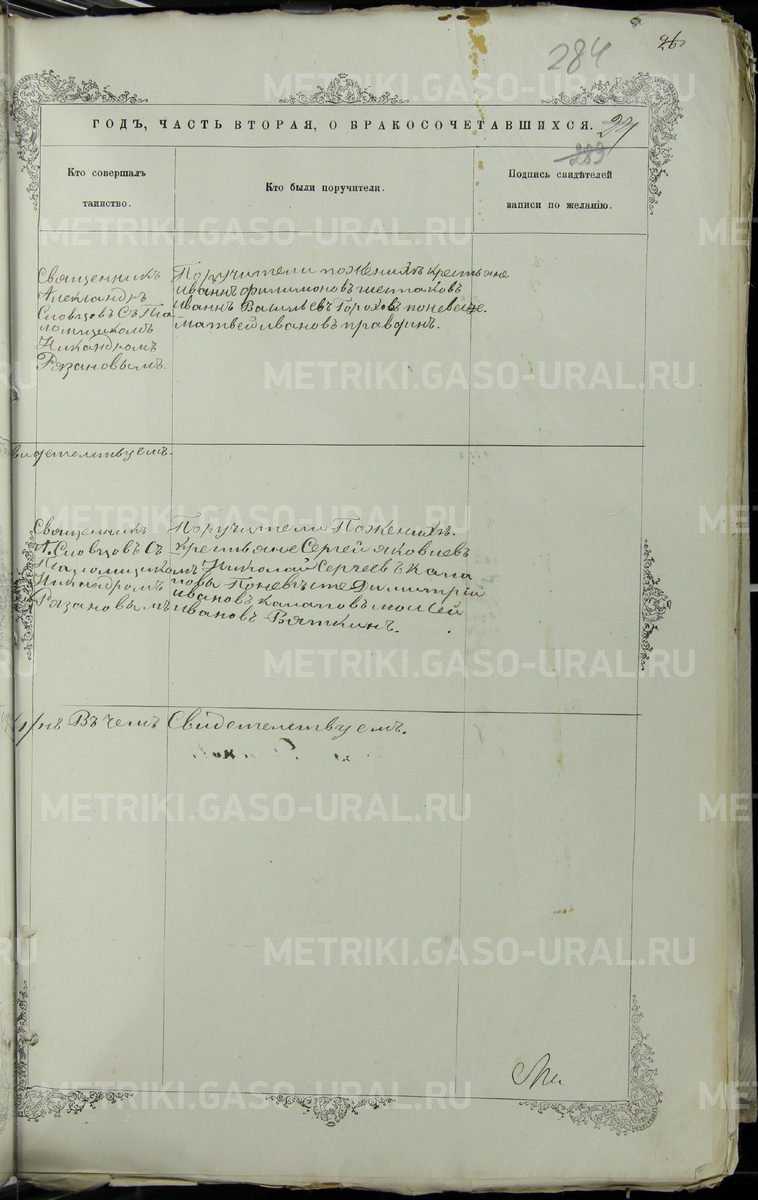 284
26
ГОДЪ, ЧАСТЬ ВТОРАЯ, О БРАКОСОЧЕТАВШИХСЯ.
283
Кто совершалъ таинство.
Кто были поручители.
Подпись свидѣтелей записи по желанію.
Священникъ
Александръ
Словцовъ съ Пса
ломщикомъ
Никандромъ
Рязановымъ.
Поручители по женихѣ крестьяне
Иванъ Филимоновъ Шестаковъ
Иванъ Васильевъ Гороховъ по невесте.
Матвей Ивановъ
видетелствуемъ.
Священникъ
А. Словцовъ съ
Псаломщикомъ
Никандромъ
Рязановымъ
Поручители По женихѣ.
крестьяне Сергей Яковлевъ
Николай Сергеевъ
По невѣсте Димитрій
Ивановъ Моисей
Ивановъ Вяткинъ.
Въ чемъ Свидетелствуемъ.
METRIKI.GASO-URAL.RU